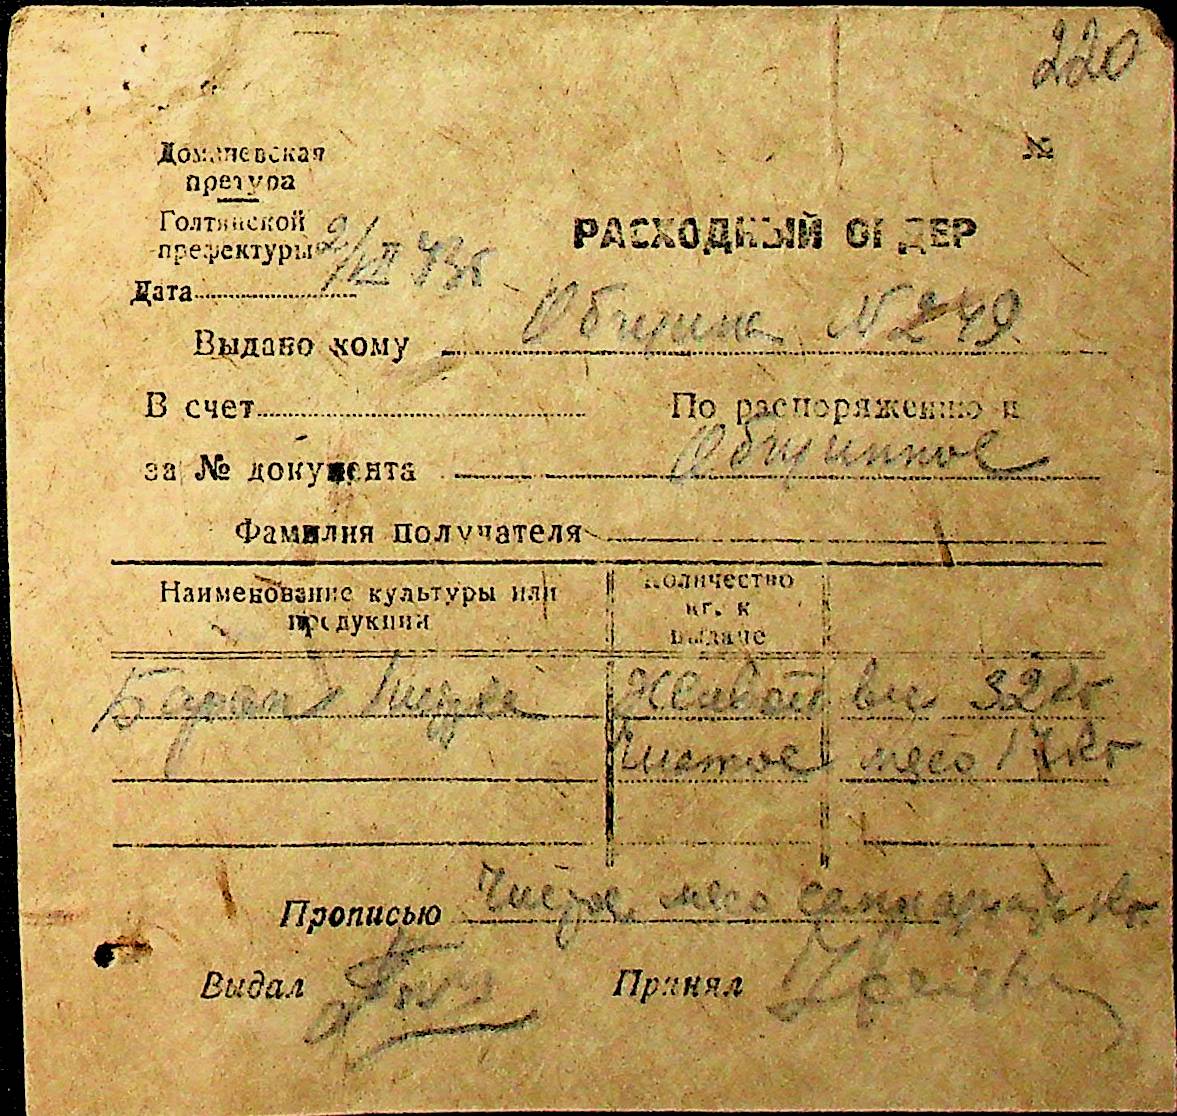 220
Доманевская
претура
№
Голтянской
префектуры
РАСХОДНЫЙ ОРДЕР
Дата 2/VII 43г
Выдано кому Община N 249
В счет По распоряжению и
за № документа Общинное
Фамилия получателя
Наименование культуры или
продукции
Количество
кг. к
выдаче
Баран 1 Живой вес 32 кг
Чистое мясо 17 кг
Прописью Чистое мясо семнадцать кг
Выдал Принял